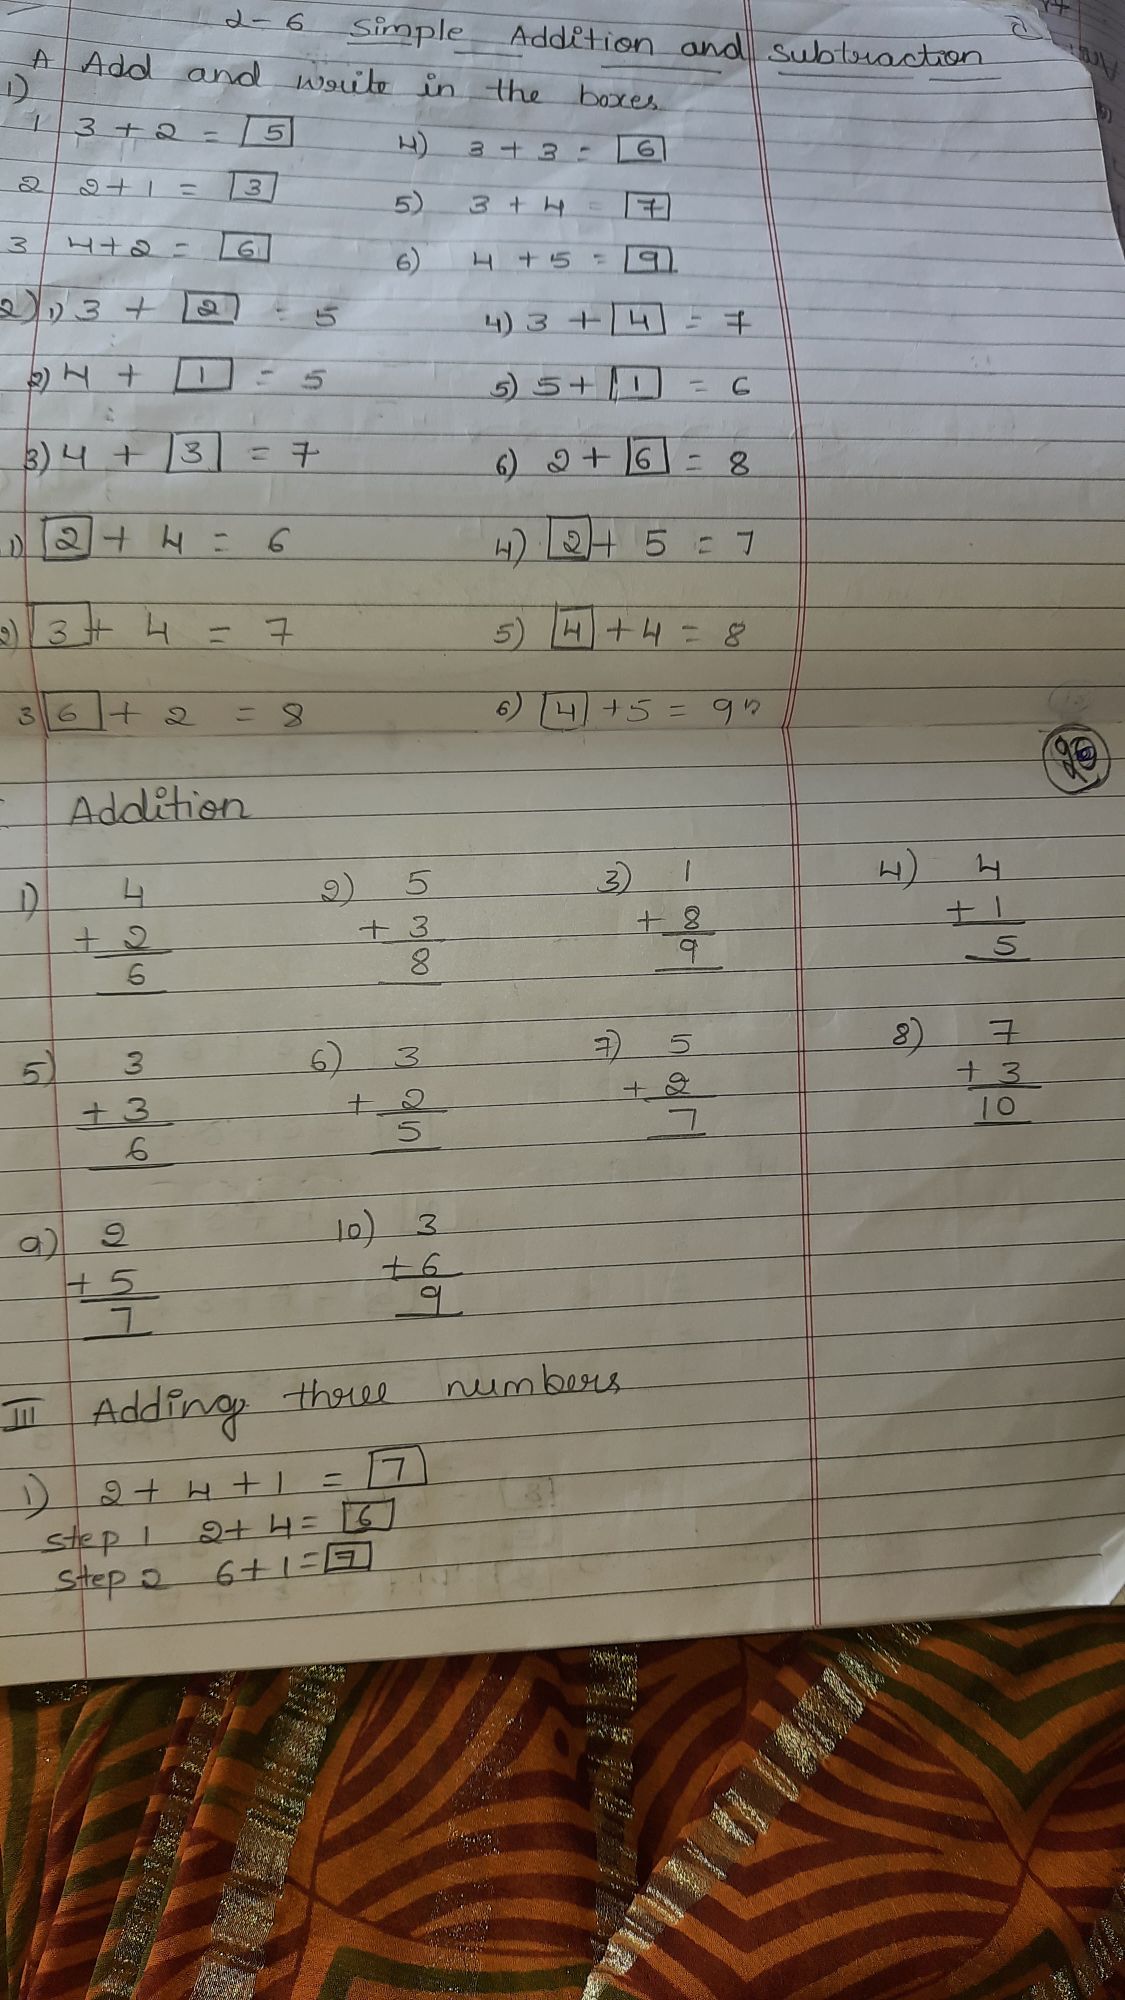 2-6 Simple Addition and subtraction
A Add and write in the boxes
1)
1 3 + 2 = 5 4) 3 + 3 = 6
2 2 + 1 = 3 5) 3 + 4 = 7
3 4 + 2 = 6 6) 4 + 5 = 9
2) 1) 3 + 2 = 5 4) 3 + 4 = 7
2) 4 + 1 = 5 5) 5 + 1 = 6
3) 4 + 3 = 7 6) 2 + 6 = 8
1) 2 + 4 = 6 4) 2 + 5 = 7
2) 3 + 4 = 7 5) 4 + 4 = 8
3 6 + 2 = 8 6) 4 + 5 = 9
Addition
1) 4 2) 5 3) 1 4) 4
+ 2 + 3 + 8 + 1
6 8 9 5
5) 3 6) 3 7) 5 8) 7
+ 3 + 2 + 2 + 3
6 5 7 10
9) 2 10) 3
+ 5 + 6
7 9
III Adding three numbers
1) 2 + 4 + 1 = 7
step 1 2 + 4 = 6
step 2 6 + 1 = 7